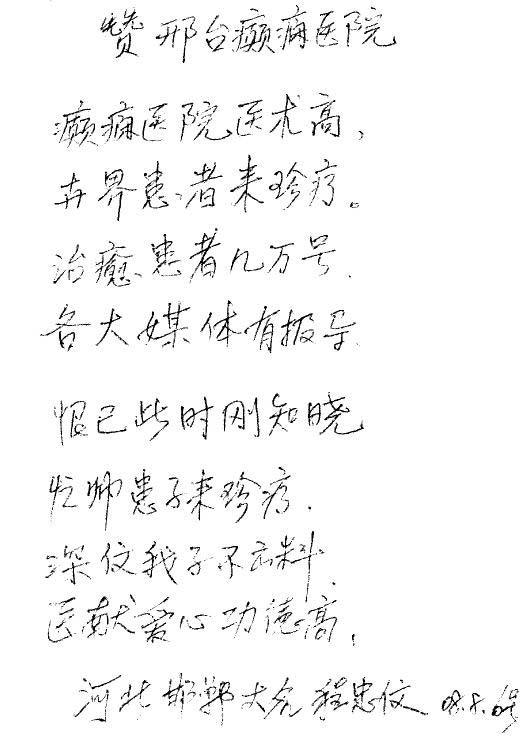 赞邢台癫痫医院
癫痫医院医术高，
世界患者来珍疗。
治癒患者几万号.
各大媒体有报导.
恨己此时刚知晓
忙帅患子来珍疗.
深 我子不 料.
医献爱心功德高，
河北邯郸大名程忠 08.8.